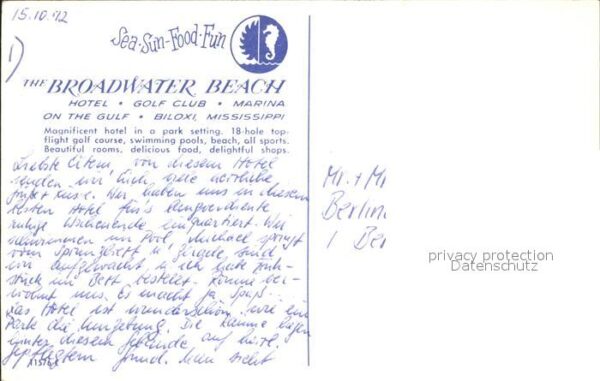 15.10.72
1)
Sea·Sun·Food·Fun
THE BROADWATER BEACH
HOTEL • GOLF CLUB • MARINA
ON THE GULF • BILOXI, MISSISSIPPI
Magnificent hotel in a park setting. 18-hole top-
flight golf course, swimming pools, beach, all sports.
Beautiful rooms, delicious food, delightful shops.
Liebste Eltern, von diesem Hotel
senden wir Euch viele
Grüße + Küsse. Wir haben uns in diesem
besten Hotel für's
ruhige Wochenende einquartiert. Wir
schwimmen im Pool, Michael springt
vom Sprungbrett u. gerade sind
wir aufgewacht u. ich habe Früh-
stück im Bett bestellt.
uns. Es macht ja Spaß..
Das Hotel ist wunderschön, wie ein
Park die Umgebung. Die Räume liegen
hinter diesem Gebäude auf
gepflegtem Grund. Man sieht
Mr. + Mr
Berlin
1 Ber
privacy protection
Datenschutz